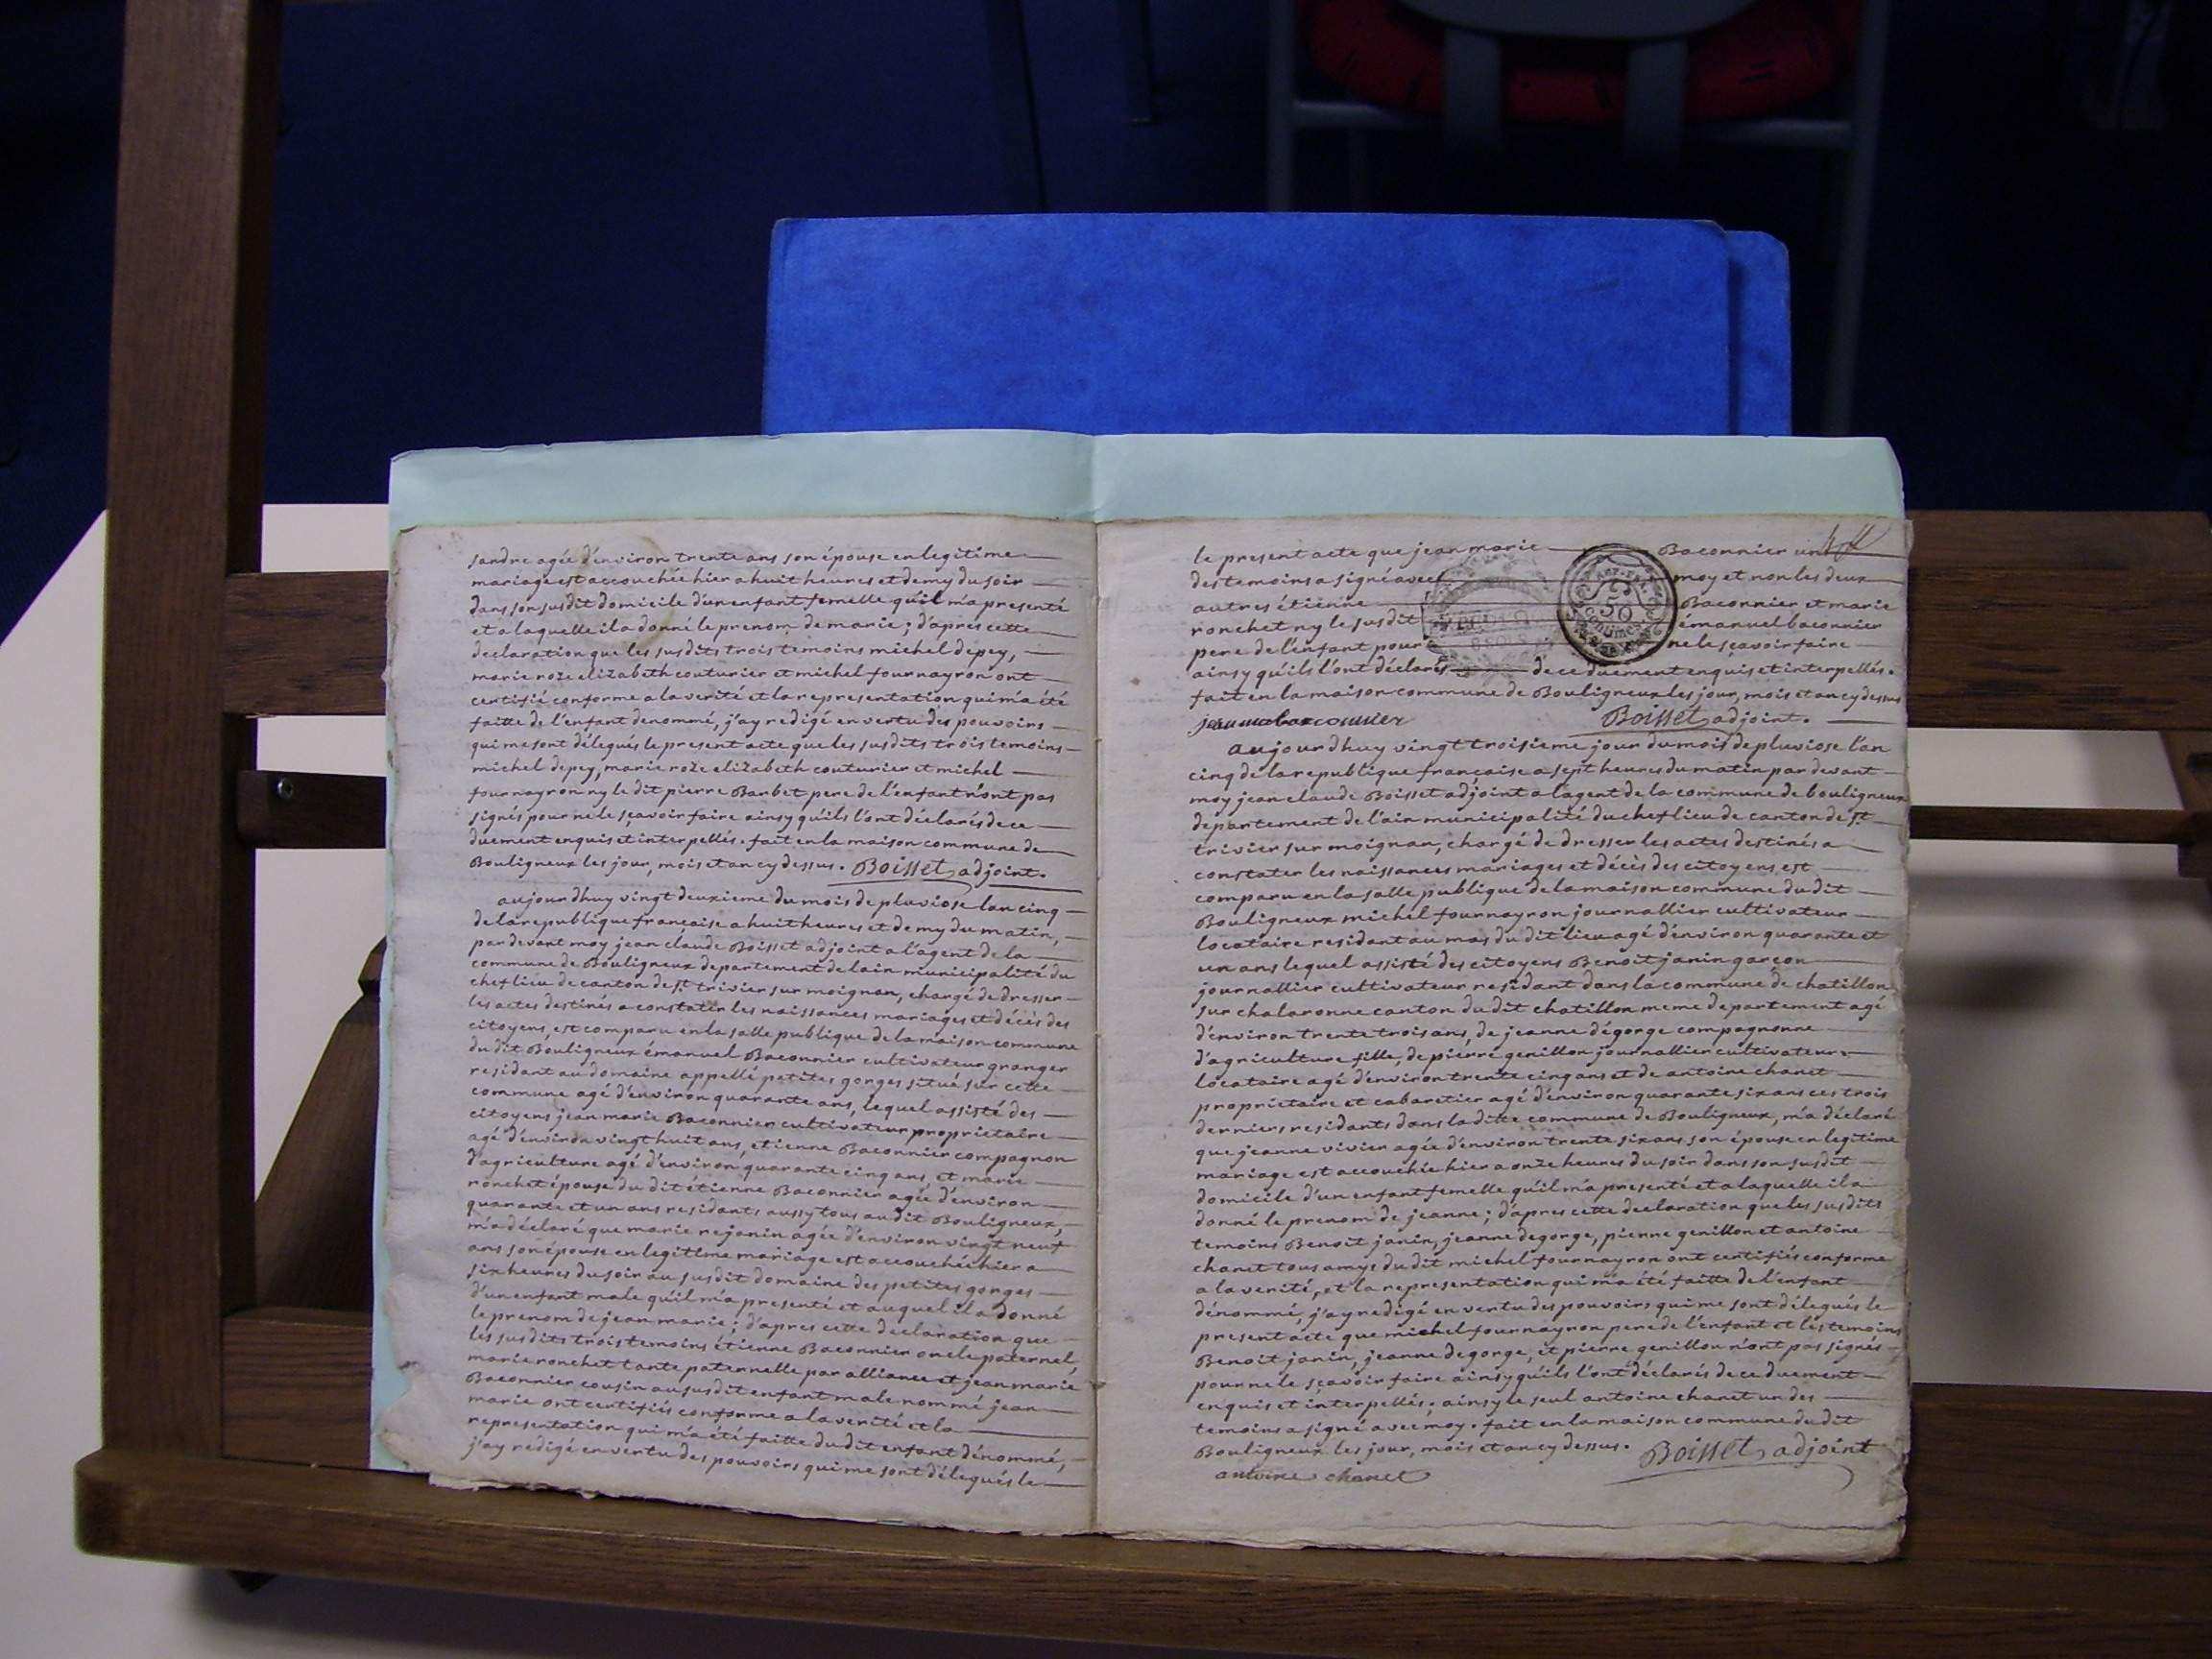 sandre agée d'environ trente ans son épouse en legitime
mariage est accouchée hier a huit heures et demy du soir
dans son susdit domicile d'un enfant femelle qu'il m'a presenté
et a laquelle il a donné le prenom de marie ; d'apres cette
declaration que les susdits trois temoins michel depey,
marie roze elizabeth couturier et michel fournayron ont
certifié conforme a la verité et la representation qui m'a été
faitte de l'enfant denommé, j'ay redigé en vertu des pouvoirs
qui me sont délegués le present acte que les susdits trois temoins
michel depey, marie roze elizabeth couturier et michel
fournayron ny le dit pierre Barbet pere de l'enfant n'ont pas
signés pour ne le sçavoir faire ainsy qu'ils l'ont déclarés de ce
duement enquis et interpellés. fait en la maison commune de
Bouligneux les jour, mois et an cy dessus. Boisset adjoint.
aujourdhuy vingt deuxieme du mois de pluviose l'an cinq
de la republique française a huit heures et demy du matin,
par devant moy jean claude Boisset adjoint a l'agent de la
commune de Bouligneux departement de l'ain municipalité du
chef lieu de canton de st trivier sur moignan, chargé de dresser
les actes destinés a constater les naissances mariages et décès des
citoyens, est comparu en la salle publique de la maison commune
du dit Bouligneux émanuel Baconnier cultivateur granger
residant au domaine appellé petites gorges situé sur cette
commune agé d'environ quarante ans, lequel assisté des
citoyens jean marie Baconnier cultivateur proprietaire
agé d'environ vingt huit ans, etienne Baconnier compagnon
d'agriculture agé d'environ quarante cinq ans, et marie
ronchet épouse du dit étienne Baconnier agée d'environ
quarante et un ans residants aussy tous au dit Bouligneux,
m'a déclaré que marie rejanin agée d'environ vingt neuf
ans son épouse en legitime mariage est accouchée hier a
six heures du soir au susdit domaine des petites gorges
d'un enfant male qu'il m'a presenté et auquel il a donné
le prenom de jean marie ; d'apres cette declaration que
les susdits trois temoins étienne Baconnier oncle paternel,
marie ronchet tante paternelle par alliance et jean marie
Baconnier cousin au susdit enfant male nommé jean
marie ont certifiés conforme a la verité et la
representation qui m'a été faitte du dit enfant dénommé,
j'ay redigé en vertu des pouvoirs qui me sont délegués le
le present acte que jean marie Baconnier un
des temoins a signé avec moy et non les deux
autres étienne Baconnier et marie
ronchet ny le susdit émanuel baconnier
pere de l'enfant pour ne le sçavoir faire
ainsy qu'ils l'ont déclarés de ce duement enquis et interpellés.
fait en la maison commune de Bouligneux les jour, mois et an cy dessus
50
centimes
Boisset adjoint.
aujourdhuy vingt troisieme jour du mois de pluviose l'an
cinq de la republique française a sept heures du matin par devant
moy jean claude Boisset adjoint a l'agent de la commune de bouligneux
departement de l'ain municipalité du chef lieu de canton de st
trivier sur moignan, chargé de dresser les actes destinés a
constater les naissances mariages et décès des citoyens est
comparu en la salle publique de la maison commune du dit
Bouligneux michel fournayron journallier cultivateur
locataire residant au mas du dit lieu agé d'environ quarante et
un ans lequel assisté des citoyens Benoit janin garçon
journallier cultivateur residant dans la commune de chatillon
sur chalaronne canton du dit chatillon meme departement agé
d'environ trente trois ans, de jeanne dégorge compagnonne
d'agriculture fille, de pierre genillon journallier cultivateur
locataire agé d'environ trente cinq ans et de antoine chanet
proprietaire et cabaretier agé d'environ quarante six ans ces trois
derniers residants dans la ditte commune de Bouligneux, m'a déclaré
que jeanne vivier agée d'environ trente six ans son épouse en legitime
mariage est accouchée hier a onze heures du soir dans son susdit
domicile d'un enfant femelle qu'il m'a presenté et a laquelle il a
donné le prenom de jeanne ; d'apres cette declaration que les susdits
temoins Benoit janin, jeanne degorge, pierre genillon et antoine
chanet tous amys du dit michel fournayron ont certifiés conforme
a la verité, et la representation qui m'a été faitte de l'enfant
dénommé, j'ay redigé en vertu des pouvoirs qui me sont délegués le
present acte que michel fournayron pere de l'enfant et les temoins
Benoit janin, jeanne degorge, et pierre genillon n'ont pas signés
pour ne le sçavoir faire ainsy qu'ils l'ont déclarés de ce duement
enquis et interpellés ; ainsy le seul antoine chanet un des
temoins a signé avec moy. fait en la maison commune du dit
Bouligneux les jour, mois et an cy dessus. Boisset adjoint
antoine chanet